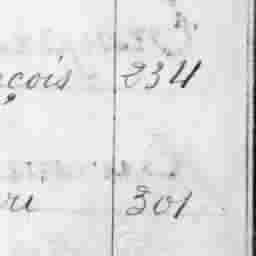 çois 234
ri 301